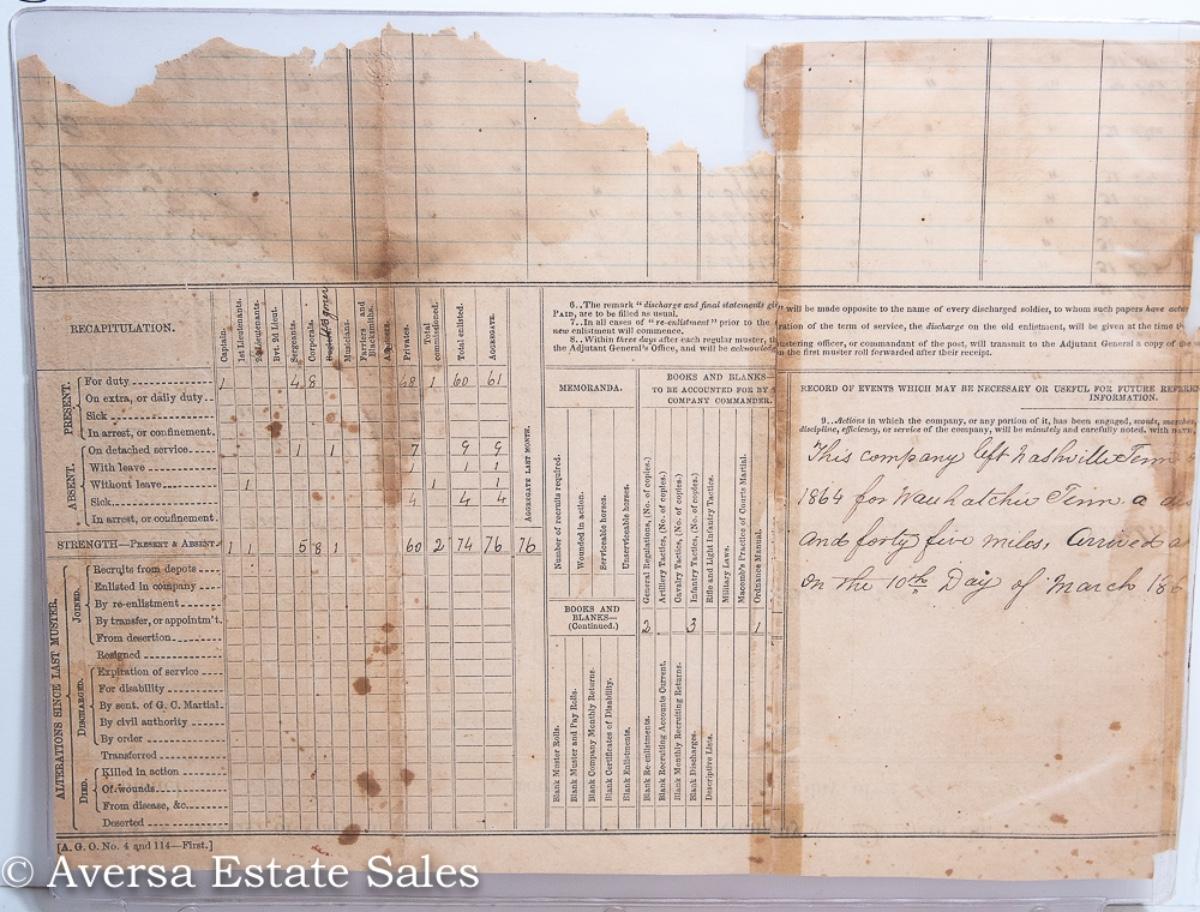 RECAPITULATION.
Captain.
1st Lieutenants.
2d Lieutenants.
Bvt. 2d Lieut.
Sergeants.
Corporals.
Musicians.
Farriers and Blacksmiths.
Privates.
Total commissioned.
Total enlisted.
AGGREGATE.
AGGREGATE LAST MONTH.
PRESENT.
For duty 1 4 8 48 1 60 61
On extra, or daily duty
Sick
In arrest, or confinement.
ABSENT.
On detached service 1 1 7 9 9
With leave 1 1 1
Without leave 1 1 1
Sick 4 4 4
In arrest, or confinement.
STRENGTH—PRESENT & ABSENT 1 1 5 8 1 60 2 74 76 76
ALTERATIONS SINCE LAST MUSTER.
JOINED.
Recruits from depots
Enlisted in company
By re-enlistment
By transfer, or appointm't.
From desertion
Resigned
DISCHARGED.
Expiration of service
For disability
By sent. of G. C. Martial.
By civil authority
By order
Transferred
DIED.
Killed in action
Of wounds
From disease, &c.
Deserted
[A. G. O. No. 4 and 114—First.]
6..The remark "discharge and final statements
PAID, are to be filed as usual.
7..In all cases of "re-enlistment" prior to the
new enlistment will commence.
8..Within three days after each regular muster,
the Adjutant General's Office, and will be
will be made opposite to the name of every discharged soldier, to whom such papers have
ration of the term of service, the discharge on the old enlistment, will be given at the time
officer, or commandant of the post, will transmit to the Adjutant General a copy of the
the first muster roll forwarded after their receipt.
MEMORANDA.
Number of recruits required.
Wounded in action.
Serviceable horses.
Unserviceable horses.
BOOKS AND BLANKS—
TO BE ACCOUNTED FOR BY
COMPANY COMMANDER.
General Regulations, (No. of copies.) 2
Artillery Tactics, (No. of copies.)
Cavalry Tactics, (No. of copies.)
Infantry Tactics, (No. of copies.) 3
Rifle and Light Infantry Tactics.
Military Laws.
Macomb's Practice of Courts Martial.
Ordnance Manual. 1
BOOKS AND
BLANKS—
(Continued.)
Blank Muster Rolls.
Blank Muster and Pay Rolls.
Blank Company Monthly Returns.
Blank Certificates of Disability.
Blank Enlistments.
Blank Re-enlistments.
Blank Recruiting Accounts Current.
Blank Monthly Recruiting Returns.
Blank Discharges.
Descriptive Lists.
RECORD OF EVENTS WHICH MAY BE NECESSARY OR USEFUL FOR FUTURE
INFORMATION.
9..Actions in which the company, or any portion of it, has been engaged, scouts, marches,
discipline, efficiency, or service of the company, will be minutely and carefully noted, with
This company left Nashville Tenn
1864 for Wauhatchie Tenn a
and forty five miles, Arrived
on the 10th Day of March 186
© Aversa Estate Sales